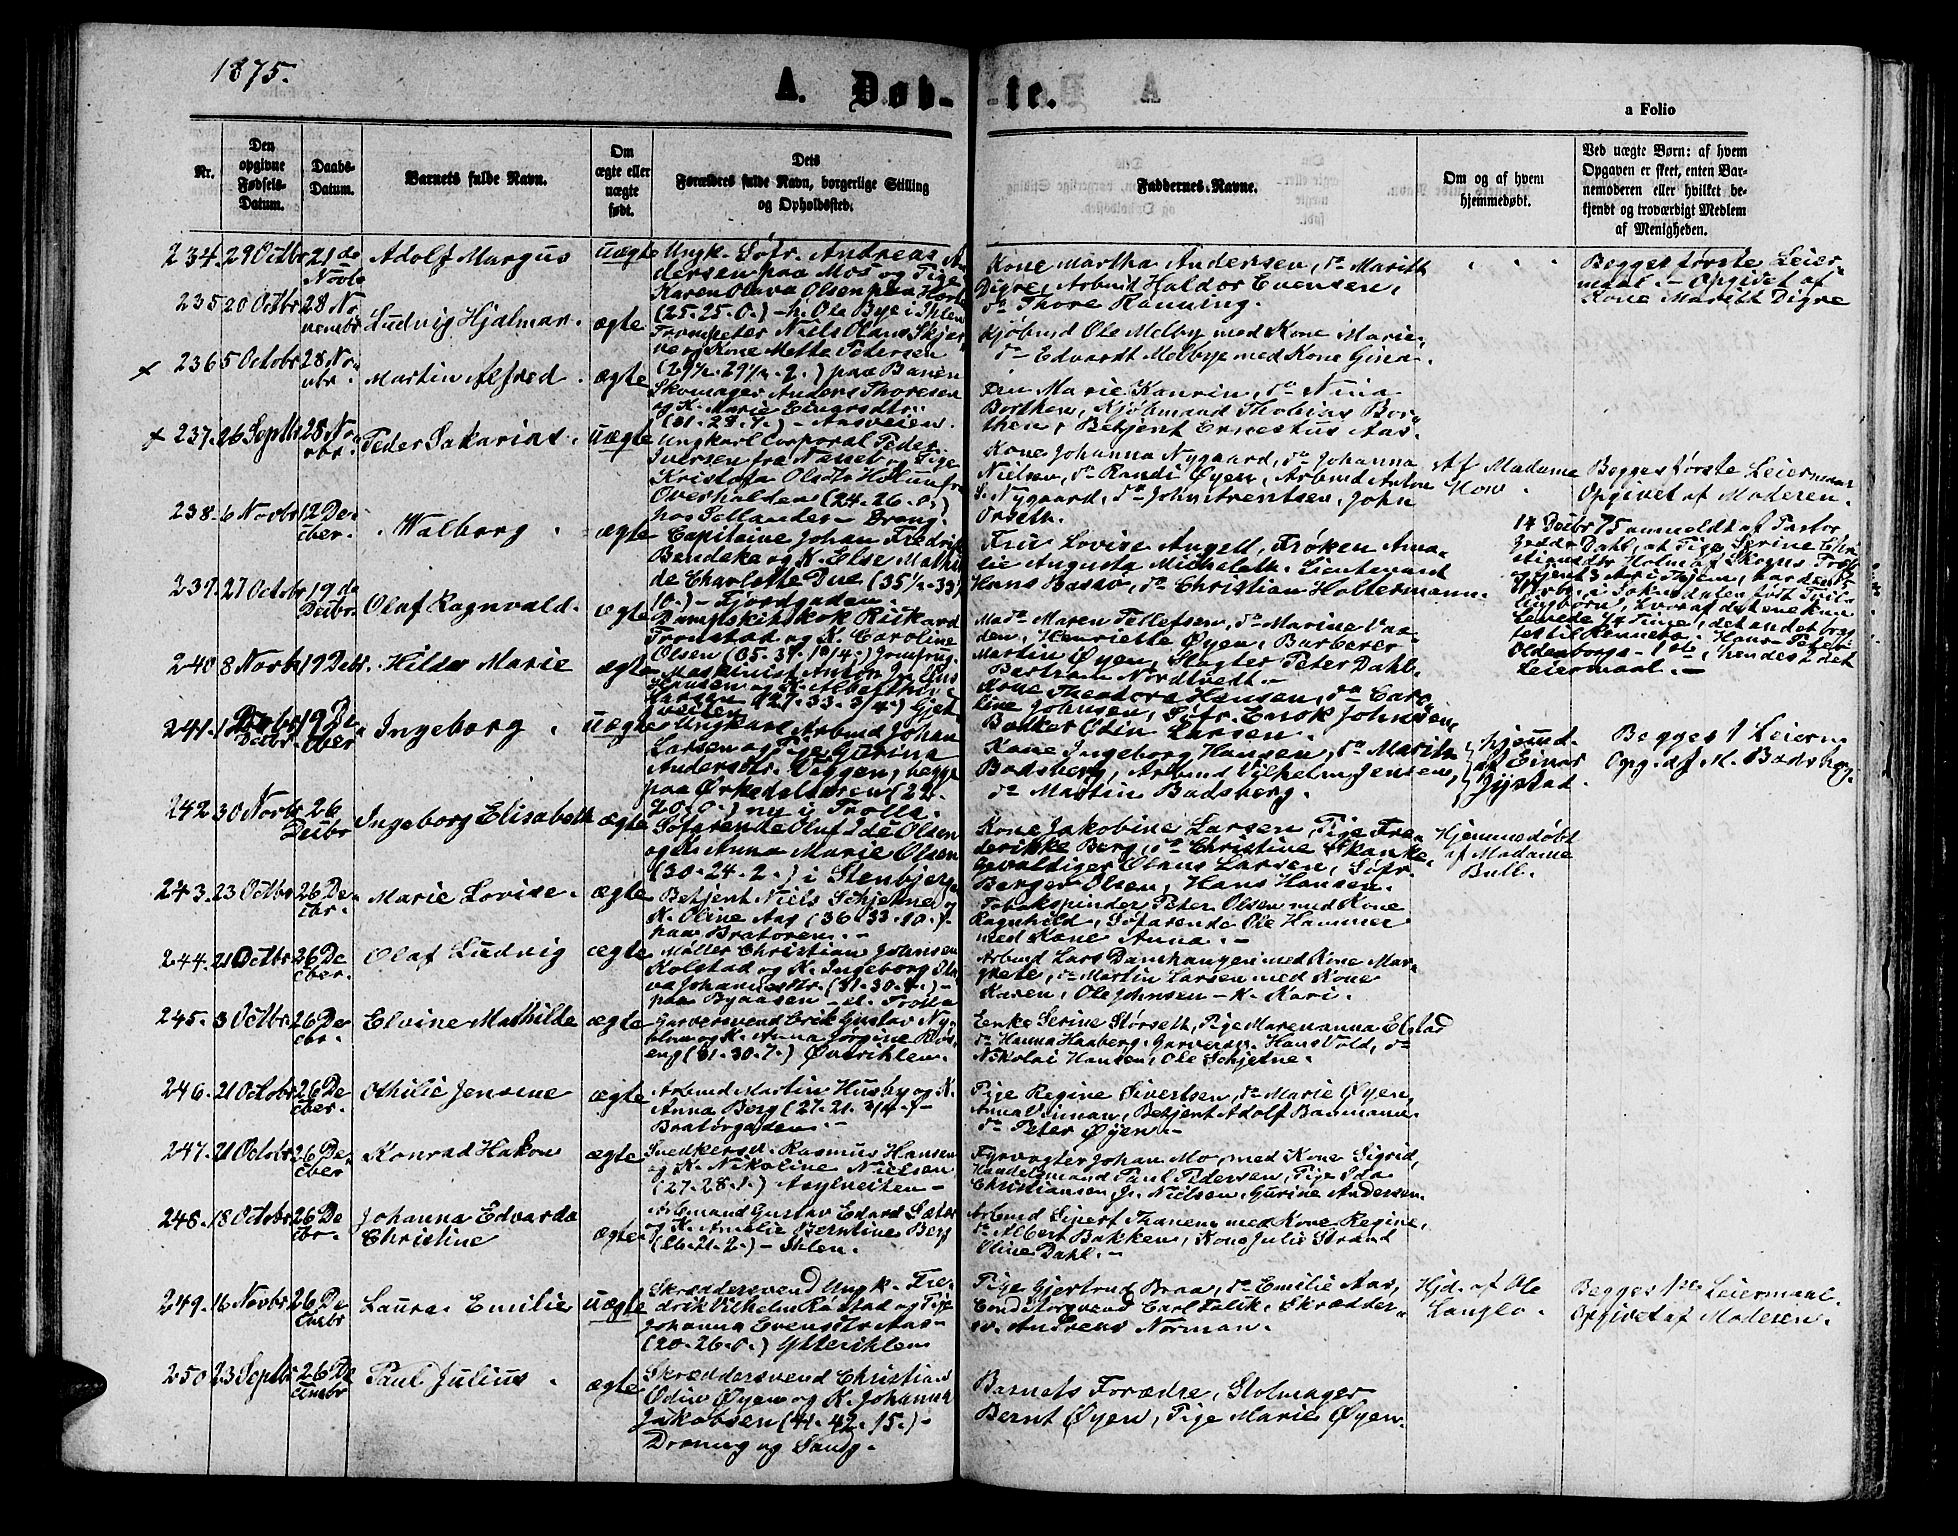 1875.
A. Døb-te.
a Folio
Nr.
Den opgivne Fødsels-Datum.
Daabs-Datum.
Barnets fulde Navn.
Om ægte eller uægte født.
Dets Forældres fulde Navn, borgerlige Stilling og Opholdssted.
Faddernes Navne.
Om og af hvem hjemmedøbt.
Ved uægte Børn: af hvem Opgaven er skeet, enten Barnemoderen eller hvilket bekjendt og troværdigt Medlem af Menigheden.
234. 29 Octbr 21de Novbr Adolf Margus uægte
Ungk. Søfr. Andreas An
dersen paa Mos og Pige
Karen Olava Olsen paa
(25-25-0.) - h. Ole Bye i Ihlen
Kone Martha Andersen, do Marith
Digre, Arbmd Haldor Evensen,
do Thore Rønning.
Begges første Leier-
maal. - Opgivet af
Kone Marith Digre
235 20 Octbr 28 No
vembr Ludvig Hjalmar. ægte
Trompeter Niels Olaus Skjer
ve og Kone Mette Pedersen
(29½-29½-2.) paa Banen
Kjøbmd Ole Melby med Kone Marie,
do Edvardt Melbye med Kone Gina.
x 236 5 Octobr 28 No
vbr. Martin Alfred. ægte
Skomager Anders Thoresen
og K. Marie Einarsdtr.
(31-28-7.) - Aasveien.
Marie Kanrin, do Nina
Borthen, Kjøbmand Thobias Bor-
then, Betjent Ernestus Aas.
x 237. 26 Septbr 28 No
vbr. Peder Sakarias. uægte
Ungkarl Corporal Peder
Iversen fra Næsset og Pige
Kristofa Olsdtr
Overhalden (24-26-0.)
hos Sellander - Drong.
Kone Johanna Nygaard, do Johanna
Nielsen, do Randi Øyen, Arbmd Anton
Nygaard, do John Arentsen, John
Orseth.
Af Madame
How.
Begges første Leiermaal
Opgivet af Moderen.
238. 6 Novbr 12 De
cber. Walborg. ægte
Capitaine Johan Fredrik
Bendeke og K. Else Mathil
de Charlotte Due (35½-33½
0.) - Fjordgaden.
Frue Lovise Angell, Frøken Ama-
lie Augusta Michelet. Lieutenant
Hans Bassø, do Christian Holtermann.
14 Decbr 75 anmeldt af Pastor
Dahl, at Pige Serine Chri
stiansdtr Holm af Skogns Præst
tjent 3 Aar i Byen, har den 5
født Tvil
lingbørn, hvoraf det ene kun
levede 14 Timer, det andet bragt
tes til Rennebo. Hans Peter
Oldenborgs - 1ste, hendes 2det
Leiermaal. -
239. 27 Octobr 19de
Decbr. Olaf Ragnvald. ægte
Dampskibskok Rikard
Tronstad og K. Caroline
Olsen (35-37-10/4.) Jomfrug.
Md. Maren Tellefsen, do Marine Vaa-
den, Henriette Øyen, Barberer
Martin Øyen, Slagter Peter Dahl.
Bartram Nordtvedt -
240 8 Novbr 19 Decbr. Hilda Marie ægte
Maskinist Anton
Hansen og K. Albertine
(27-33-3/4.) Gjet
veiten
Kone Theodora Hansen, do Caro
line Johnsen, Søfr. Enok Johnsen,
Bakker Odin Larsen.
241. 1 Decbr. 19 De
cber Ingeborg. uægte
Ungkarl Arbmd Johan
Larsen og Pige Gjerina
Andersdtr. Viggen, begge
paa Ørkedalsøren (22-
20-0.) ny i Trolla.
Kone Ingeborg Hansen, do Marith
Badsberg, Arbmd Vilhelm Jensen,
do Martin Badsberg.
hjemd.
af Einar
Jystad.
Begges 1 Leierm.
Opg. af M. Badsbg.
242. 30 Novbr 26
Decbr Ingeborg Elisabeth ægte
Søfarende Oluf Ide Olsen
og K. Anna Marie Olsen
(30-24-2.) i Stenbjerg
Kone Jakobine Larsen, Pige Fre
derikke Berg, do Christine Skanke,
Gevaldiger Olaus Larsen, Søfr.
Berger Olsen, Hans Hansen.
Hjemmedøbt
af Madame
Bull.
243. 23 Octbr 26 De-
cbr. Marie Lovise. ægte
Betjent Niels Schjetne og
K. Oline Aas (36-33-10.)-
paa Bratøren. -
Tobakspinder Peter Olsen med Kone
Ragnhild, Søfarende Ole Hammer
med Kone Anna. -
244. 21 Octbr 26 De
cber. Olaf Ludvig ægte
Møller Christian Johnsen
Kolstad og K. Ingeborg Ola
va Johannesdtr. (31-30-7.) -
paa Byaasen - el. Trolla
Arbmd Lars Damhaugen med Kone Mar-
grete, do Martin Larsen med Kone
Karen, Ole Johnsen - K. Kari.
245. 3 Octbr. 26 De
cbr. Elvine Mathilde ægte
Garversvend Erik Gustav Ny-
blom og K. Anna Jørgine Røs
eng (31-30-7.) Øvreihlen.
Enke Serine Størseth, Pige Marenanna Elstad
do Hanna Haaberg. Garversv. Hans Vold, do
Nikolai Hansen, Ole Schjetne.
246. 21 Octobr 26 De
cber. Othilie Jensine ægte
Arbmd Martin Husby og K.
Anna Berg (27-21-3/4.) -
Bratørgaden. -
Pige Regine Sivertsen, do Marie Øyen,
Anna Veiman, Betjent Adolf Baumann.
do Peter Øyen. -
247. 21 Octobr 26 De
cber Konrad Hakon ægte
Snedkersd. Rasmus Hansen
og K. Nikoline Nielsen
(27-28-1.) Asylveiten -
Fyrvogter Johan Mo, med Kone Sigrid,
Handelsmand Paul Pedersen, Pige Ida
Christiansen, J. Nielsen, Gurine Andersen.
248. 18 Octobr 26 De
cbr. Johanna Edvarda
Christine ægte
Arbmand Gustav Edvard Sæter
og K. Amalie Berntine Berg
(26-21-2.) - Ihlen.
Arbmd Sivert Thanem med Kone Regine,
do Albert Bakken, Kone Julie Strand
Oline Dahl. -
249. 16 Novbr 26 De
cembr Laura Emilie uægte
Skræddersvend Ungk. Fre-
drik Vilhelm Røstad og Pige
Johanna Evensdtr Aas-
(20-26-0.) Ytterihlen
Pige Gjertrud Braa, do Emilie Aas,
Conditorsvend Carl Falik, Skrædder-
sv. Andreas Norman.
Hjd. af Ole
Langlo.
Begges 1ste Leiermaal.
Opgivet af Moderen.
250 23 Septbr 26 De
cembr Paul Julius. ægte
Skræddersvend Christian
Odin Øyen og K. Johanna
Jakobsen (41-42-15.) -
Droning og Sandg.
Barnets Forældre, Stolmager
Bernt Øyen, Pige Marie Øyen.